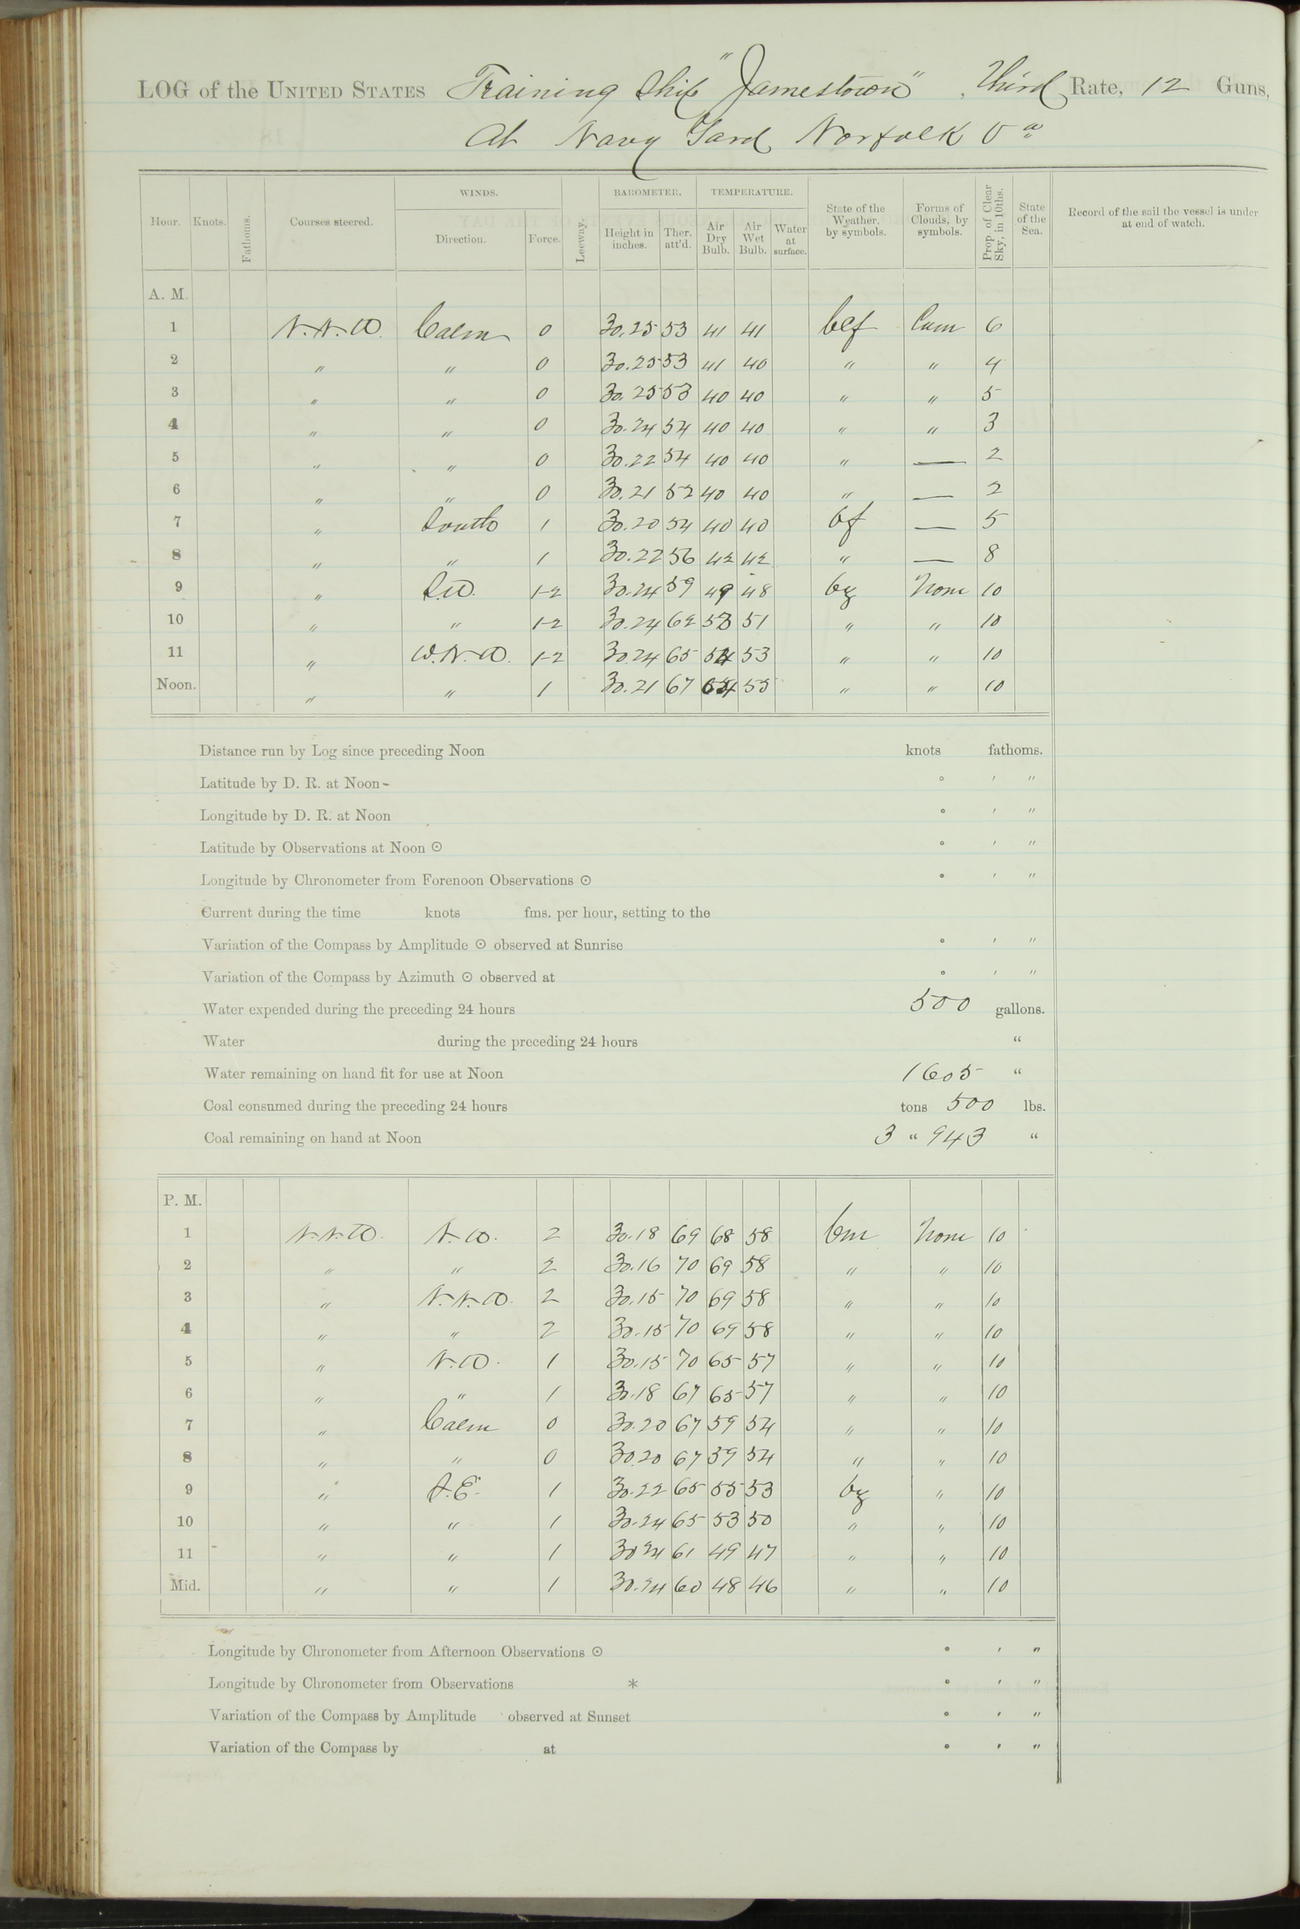 LOG of the UNITED STATES Training Ship "Jamestown", Third Rate, 12 Guns,
At Navy Yard Norfolk Va
Hour. Knots. Fathoms. Courses steered. WINDS. Direction. Force. Leeway. BAROMETER. Height in inches. Ther. att'd. TEMPERATURE. Air Dry Bulb. Air Wet Bulb. Water at surface. State of the Weather, by symbols. Forms of Clouds, by symbols. Prop. of Clear Sky, in 10ths. State of the Sea. Record of the sail the vessel is under at end of watch.
A. M.
1 N.N.W. Calm 0 30.25 53 41 41 bcf Cum 6
2 " " 0 30.25 53 41 40 " " 4
3 " " 0 30.25 53 40 40 " " 5
4 " " 0 30.24 54 40 40 " " 3
5 " " 0 30.22 54 40 40 " — 2
6 " " 0 30.21 52 40 40 " — 2
7 " South 1 30.20 54 40 40 bf — 5
8 " " 1 30.22 56 42 42 " — 8
9 " S.W. 1-2 30.24 59 49 48 bz None 10
10 " " 1-2 30.24 62 53 51 " " 10
11 " W.N.W. 1-2 30.24 65 54 53 " " 10
Noon. " " 1 30.21 67 54 55 " " 10
Distance run by Log since preceding Noon knots fathoms.
Latitude by D. R. at Noon- ° ' "
Longitude by D. R. at Noon ° ' "
Latitude by Observations at Noon ⊙ ° ' "
Longitude by Chronometer from Forenoon Observations ⊙ ° ' "
Current during the time knots fms. per hour, setting to the
Variation of the Compass by Amplitude ⊙ observed at Sunrise ° ' "
Variation of the Compass by Azimuth ⊙ observed at ° ' "
Water expended during the preceding 24 hours 500 gallons.
Water during the preceding 24 hours "
Water remaining on hand fit for use at Noon 1605 "
Coal consumed during the preceding 24 hours tons 500 lbs.
Coal remaining on hand at Noon 3 " 943 "
P. M.
1 N.N.W. N.W. 2 30.18 69 68 58 bm None 10
2 " " 2 30.16 70 69 58 " " 10
3 " N.N.W. 2 30.15 70 69 58 " " 10
4 " " 2 30.15 70 69 58 " " 10
5 " N.W. 1 30.15 70 65 57 " " 10
6 " " 1 30.18 67 65 57 " " 10
7 " Calm 0 30.20 67 59 54 " " 10
8 " " 0 30.20 67 59 54 " " 10
9 " S.E. 1 30.22 65 55 53 bz " 10
10 " " 1 30.24 65 53 50 " " 10
11 " " 1 30 24 61 49 47 " " 10
Mid. " " 1 30.24 60 48 46 " " 10
Longitude by Chronometer from Afternoon Observations ⊙ ° ' "
Longitude by Chronometer from Observations * ° ' "
Variation of the Compass by Amplitude observed at Sunset ° ' "
Variation of the Compass by at ° ' "